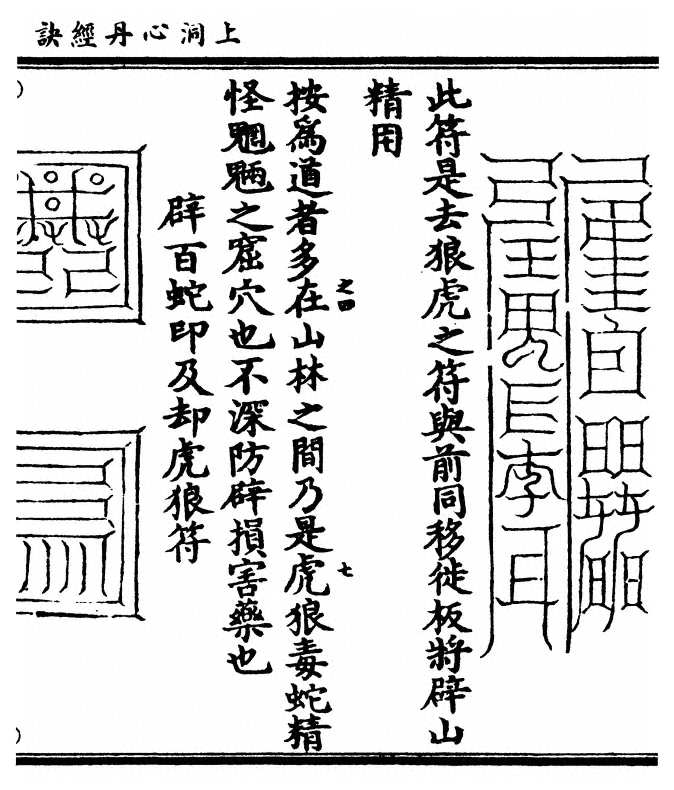 上洞心丹經訣
此符是去狼虎之符與前同移徙板將辟山
精用
之四
七
按為道者多在山林之間乃是虎狼毒蛇精
怪魍魎之窟穴也不深防辟損害藥也
辟百蛇印及却虎狼符